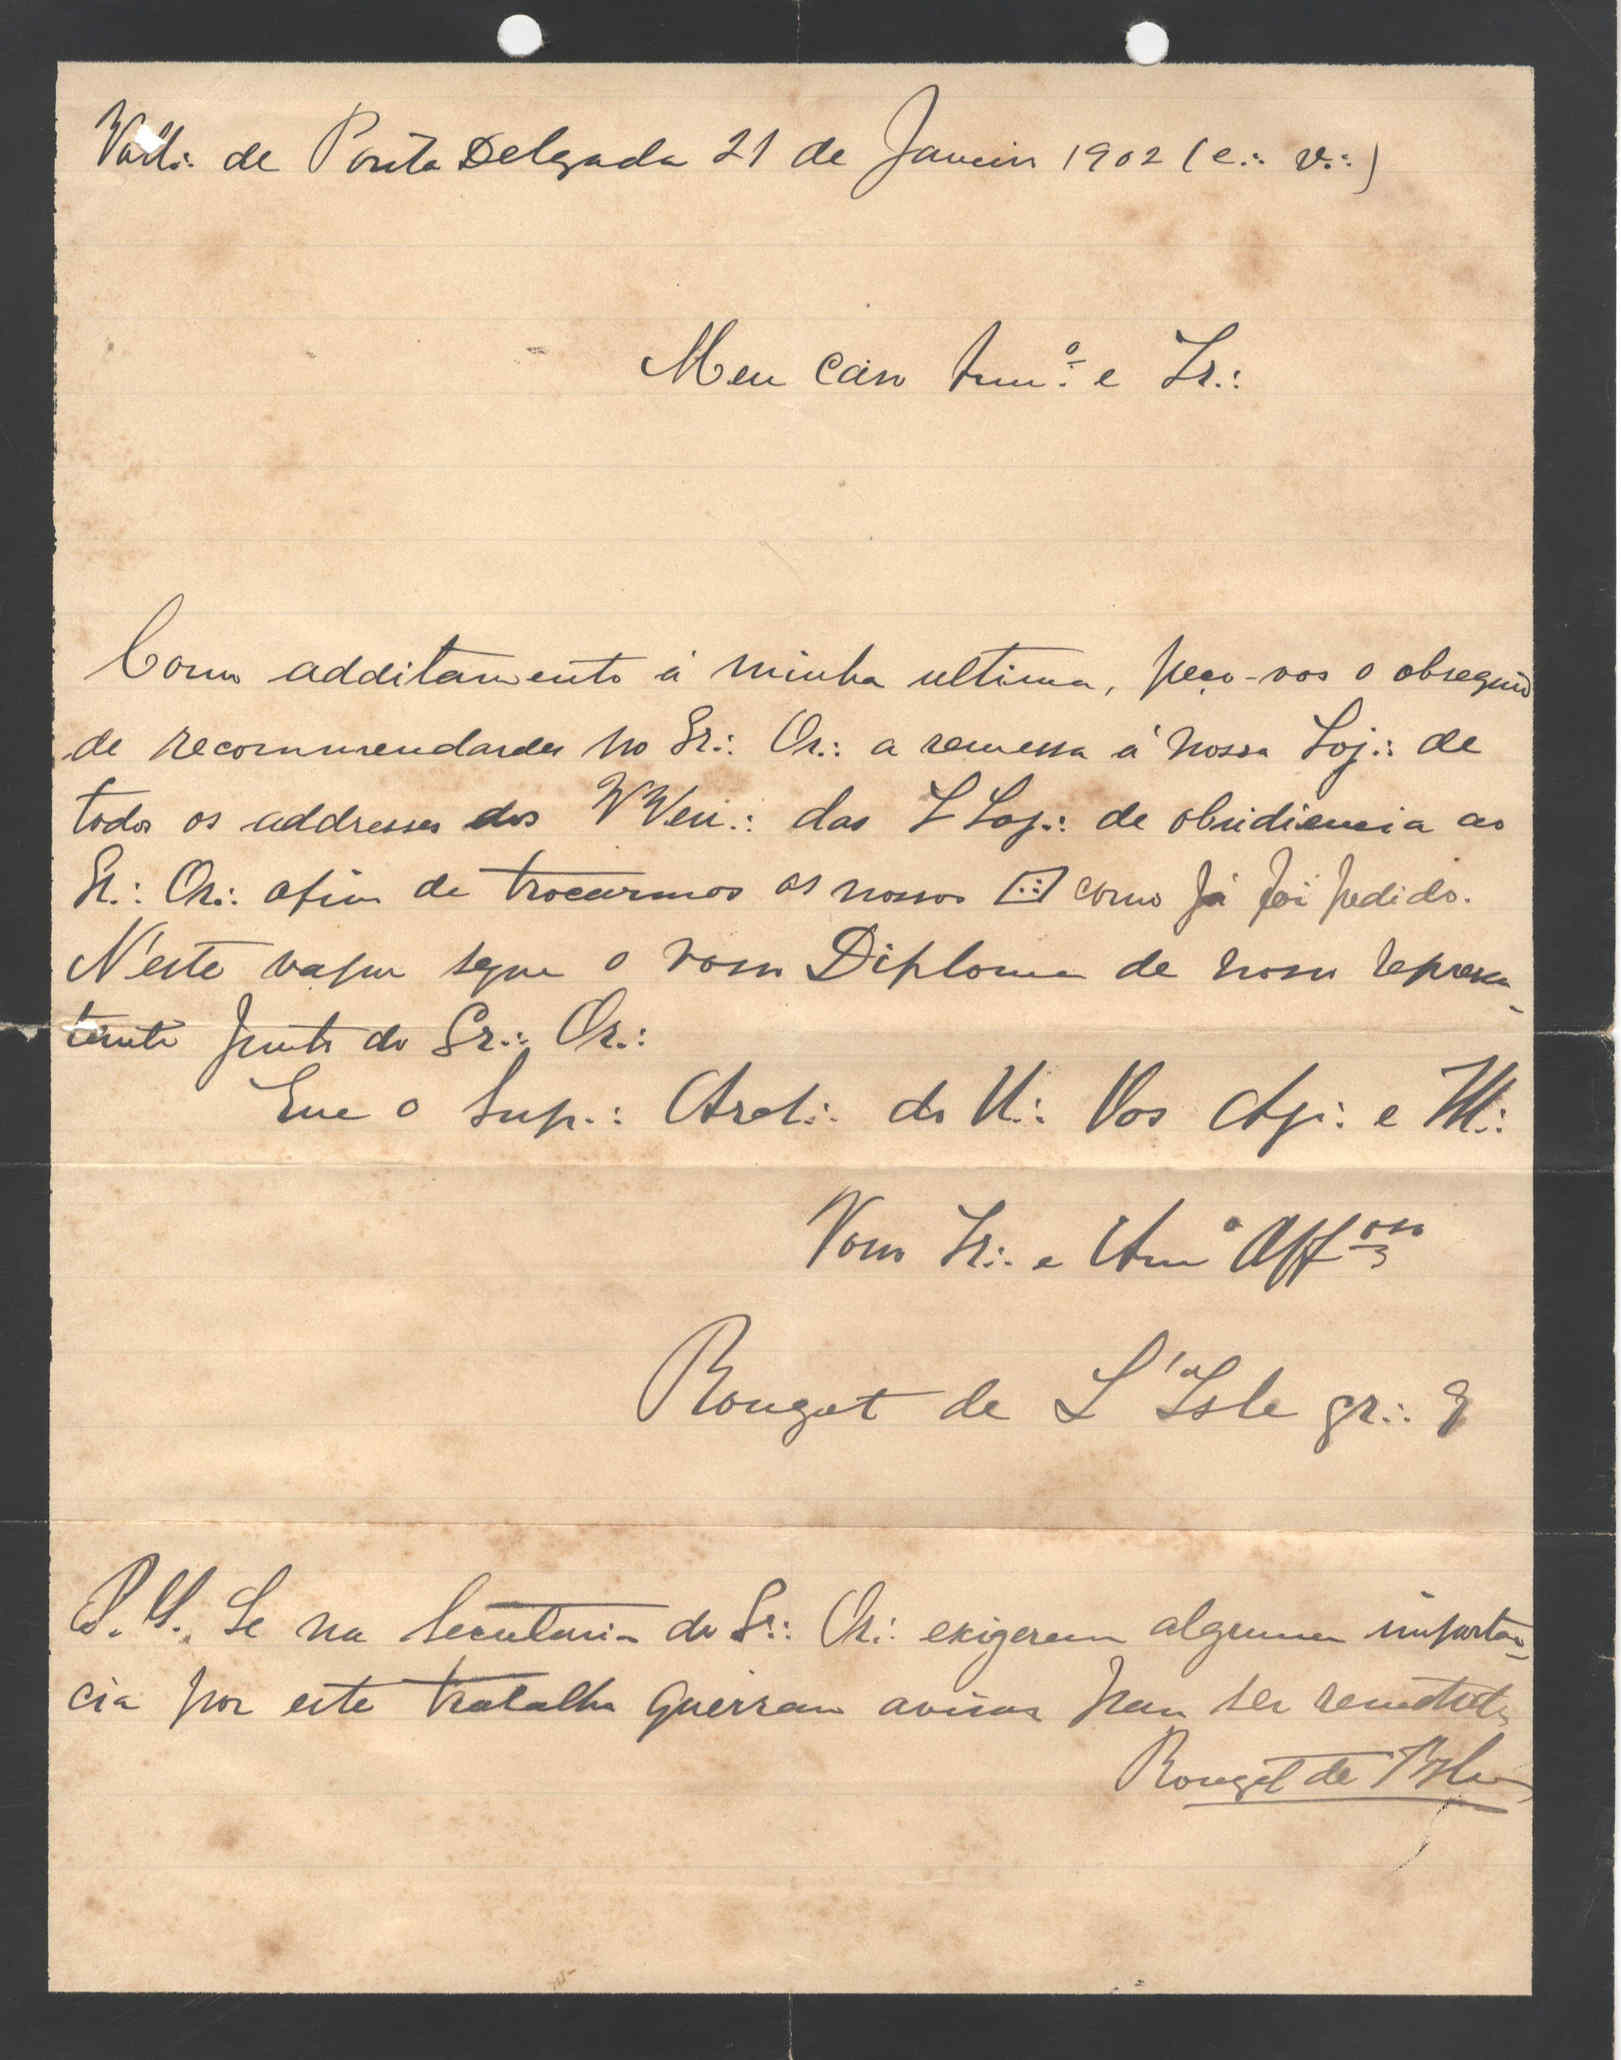 Vall∴ de Ponta Delgada 21 de Janeiro 1902 (e∴ v∴)
Meu caro Am.º e Ir∴
Como additamento á minha ultima, peço-vos o obsequio
de recommendardes no Gr∴ Or∴ a remessa á nossa Loj∴ de
todos os addresses dos VVen∴ das LLoj∴ de obidiencia ao
Gr∴ Or∴ afim de trocarmos os nossos como já foi pedido.
N'este vapor segue o vosso Diploma de nosso represen-
tante junto do Gr∴ Or∴
Que o Sup∴ Arch∴ do U∴ Vos Aj∴ e Ill∴
Vosso Ir∴ e Amº Aff.oso
Rouget de L'Isle gr∴ 3
P. S. Se na Secretaria do Gr∴ Or∴ exigerem alguma importan-
cia por este trabalho queiram avisar para ser remettida
Rouget de l'Isle